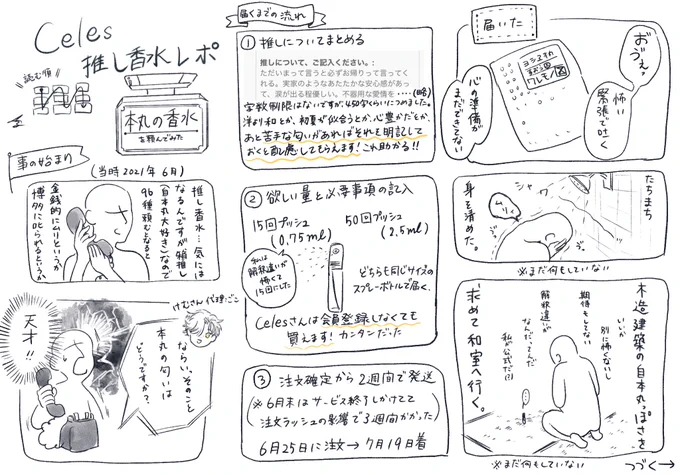 Celes
推し香水レポ
読む順
本丸の香水
を頼んでみた
事の始まり
(当時2021年6月)
推し香水…気には
なるんですが箱推し
(自本丸大好き)なので
96種頼むよなると
金銭的にムリというか
博多に叱られるというか
けむさん代理ごこ
なら、いっそのこと
本丸の匂いは
どうですか?
天才!!
届くまでの流れ
① 推しについてまとめる
推しについて、ご記入ください。:
ただいまって言うと必ずお帰りって言ってく
れる。実家のようなあたたかな安心感があっ
て、涙が出る程優しい。不器用な愛情を・・・・(略)
字数制限はないですが、450字くらいにつめました。
洋より和とか、初夏が似合うとか、心豊かだとか。
あと苦手な匂いがあればそれと明記して
おくと配慮してもらえます!これ助かる!!
② 欲しい量と必要事項の記入
15回プッシュ
(0.75ml)
50回プッシュ
(2.5ml)
私は
解釈違いが
怖くて
15回にした
どちらも同じサイズの
スプレーボトルで届く。
Celesさんは会員登録しなくても
買えます!カンタンだった
③ 注文確定から2週間で発送
(※6月末はサービス終了しかけてて
注文ラッシュの影響で3週間かかった)
6月25日に注文→7月19日着
届いた
おうぇ。
怖い
緊張で吐く
心の準備が
まだできてない
たちまち
身を清めた。
シャワー
ムリィ
※まだ何もしていない
木造建築の自本丸っぽさを
求めて和室へ行く。
いいか
別に怖くないし
期待もしてない
解釈違いが
なんだってんだ
私が公式だ(?)
※まだ何もしていない
つづく→